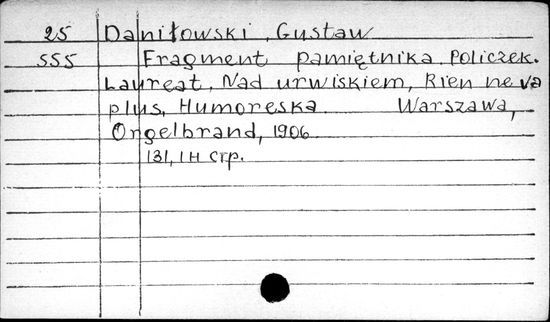 25 Daniłowski, Gustaw
555 Fragment pamiętnika. Policzek.
Laureat, Nad urwiskiem, Rien ne va
plus, Humoreska. Warszawa,
Orgelbrand, 1906.
131, 1 н стр.